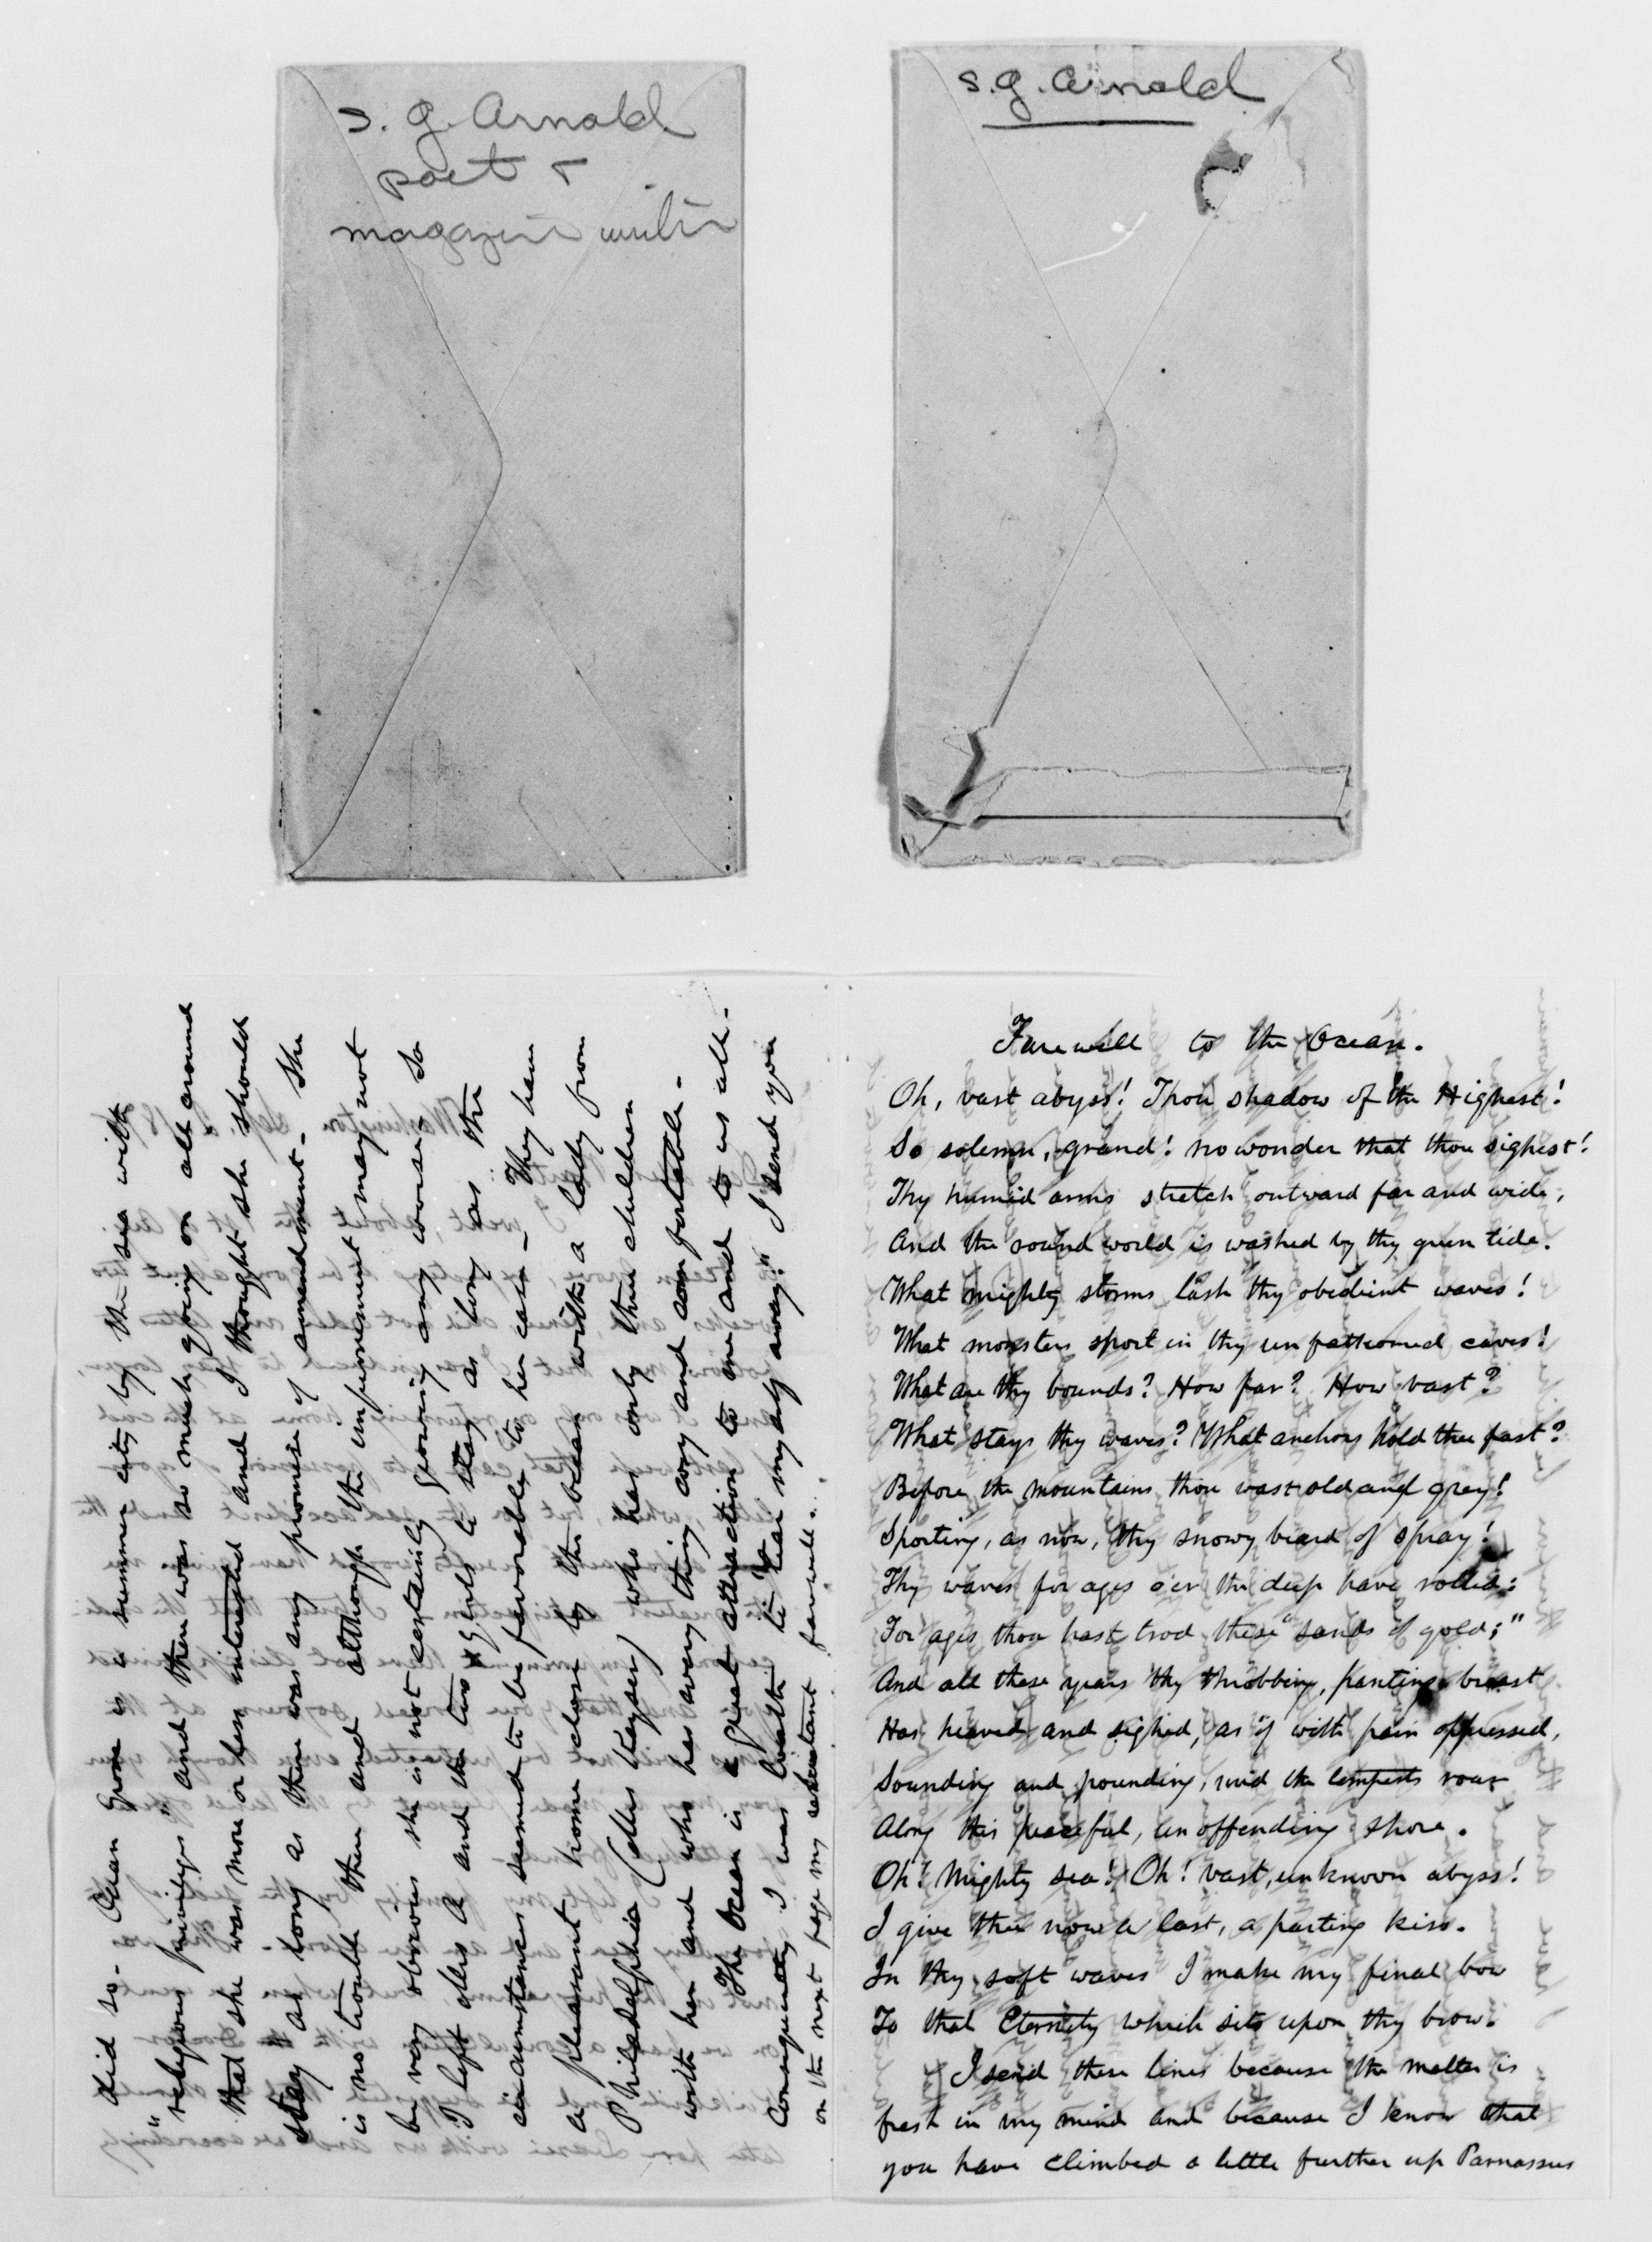 S. G. Arnold
poet &
magazine writer
S. G. Arnold
did so - Ocean Grove is a summer city by the sea with
"religious privileges" and there was so much going on all around
that she was more or less interested and I thought she should
stay as long as there was any promise of amendment - She
is no trouble then and although the improvement may not
be very obvious she is not certainly growing any worse. So
I left Mrs A and the two girls to stay as long as the
circumstances seemed to be favorable to her case - They have
a pleasant home close by the ocean with a lady from
Philadelphia (Mrs Keyser) who has only three children
with her and who has everything cosy and comfortable -
The Ocean is a great attraction to me and to us all -
Consequently I was loath "to tear myself away." I send you
on the next page my reluctant farewell.
Farewell to the Ocean.
Oh, vast abyss! Thou shadow of the Highest!
So solemn, grand! no wonder that thou sighest!
Thy humid arms stretch outward far and wide,
And the round world is washed by thy green tide.
What mighty storms lash thy obedient waves!
What monsters sport in thy unfathomed caves!
What are thy bounds? How far? How vast?
What stays thy waves? What anchors hold thee fast?
Before the mountains thou wast old and grey!
Sporting, as now, thy snowy beard of spray!
Thy waves for ages o'er the deep have rolled:
For ages thou hast trod these "sands of gold;"
And all these years thy throbbing, panting breast
Has heaved and sighed, as if with pain oppressed,
Sounding and pounding, mid the tempests roar
Along this peaceful, unoffending shore.
Oh! Mighty sea! Oh! vast, unknown abyss!
I give thee now a last, a parting kiss.
In thy soft waves I make my final bow
To that Eternity which sits upon thy brow.
I send these lines because the matter is
fresh in my mind and because I know that
you have climbed a little further up Parnassus